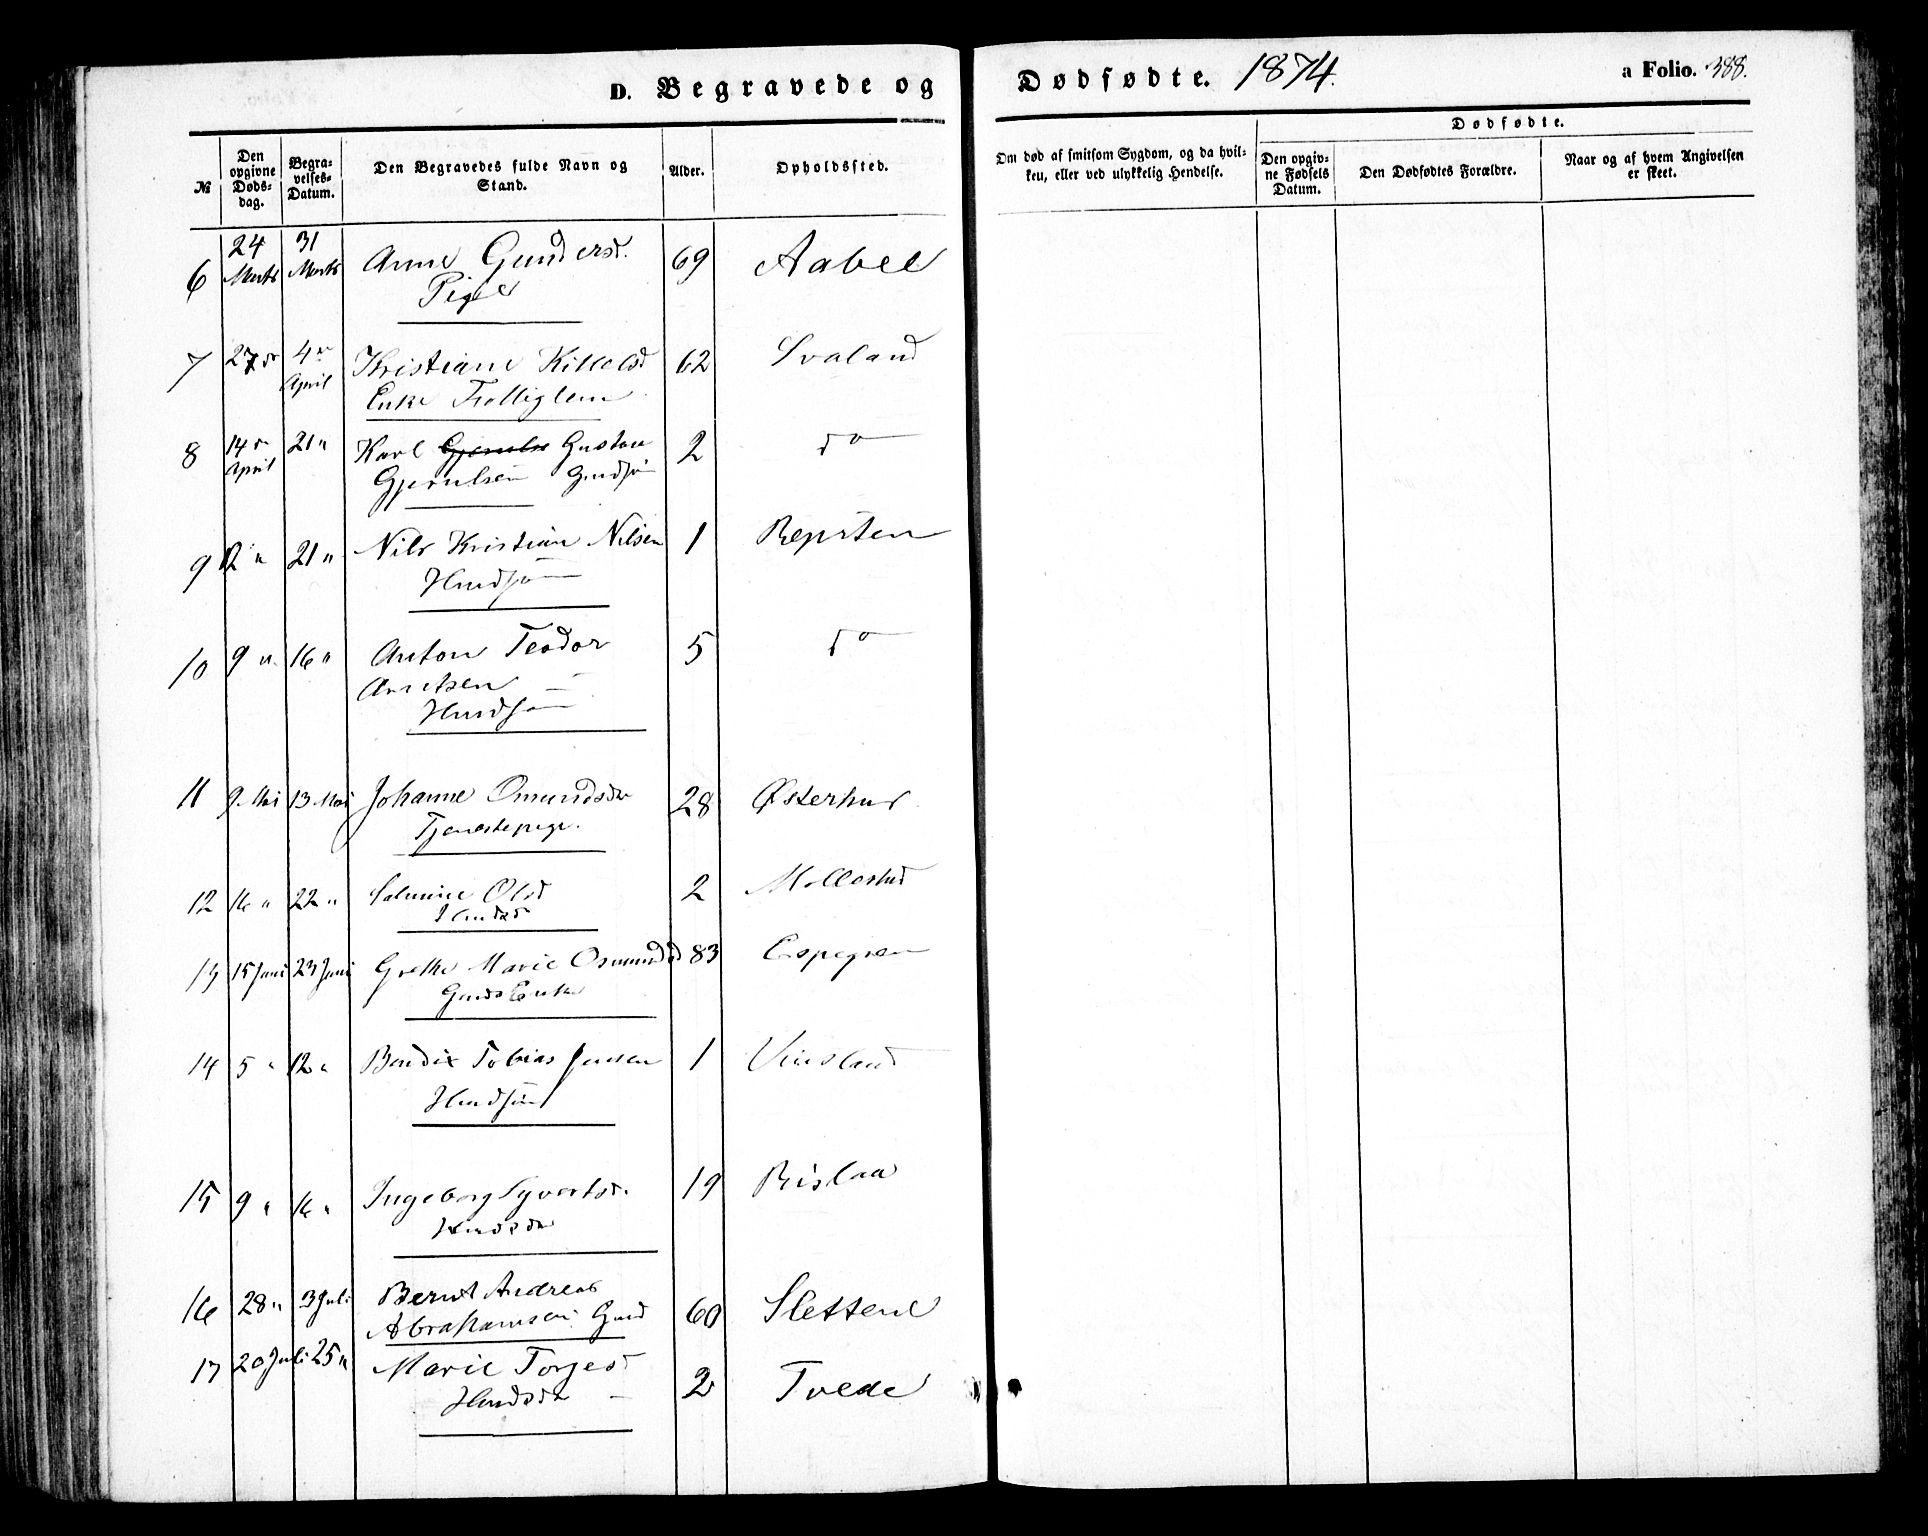 D. Begravede og Dødsødte. 1874. a Folio. 388.
№ Den opgivne Døds-dag. Begra-velses-Datum. Den Begravedes fulde Navn og Stand. Alder. Opholdssted. Om død af smitsom Sygdom, og da hvil-ken, eller ved ulykkelig Hendelse. Dødfødte. Den opgiv-ne Fødsels Datum. Den Dødfødtes Forældre. Naar og af hvem Angivelsen er skeet.
6 24 Marts 31 Marts Anne Gundersd. 69 Aabel
Pige
7 27 4 April Kristiane Killelsd 62 Svaland
Enke
8 14 April 21 " Karl Gustav 2 do
Gjerulsen Gmdsøn
9 12 " 21 " Nils Kristian Nilsen 1 Repsten
Hmdsøn
10 9 " 16 " Anton Teodor 5 do
Arntsen
Hmdsøn
11 9 Mai 13 Mai Johanne Omundsdr 28 Østerhus
Tjenestepige.
12 16 " 22 " Salmine Olsd 2 Mollestad
Hmdsd
13 15 Juni 23 Juni Grethe Marie Osmundsd 83 Espegren
Gmds Enke
14 5 " 12 " Bendix Tobias Jensen 1 Vinsland
Hmdsøn
15 9 " 16 " Ingeborg Syvertsd. 19 Rislaa
Hmdsdr
16 28 " 3 Juli Bernt Andreas
Abrahamsen Gmd 60 Slettene
17 20 Juli 25 " Marie Torjesd 2 Tvede
Hmdsdr